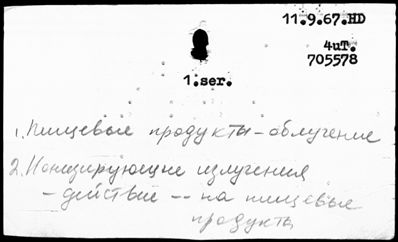 11.9.67.HD
4uT.
705578
1.ser.
1. Пищевые продукты - облучение
2. Ионизирующие излучения
- действие -- на пищевые
продукты